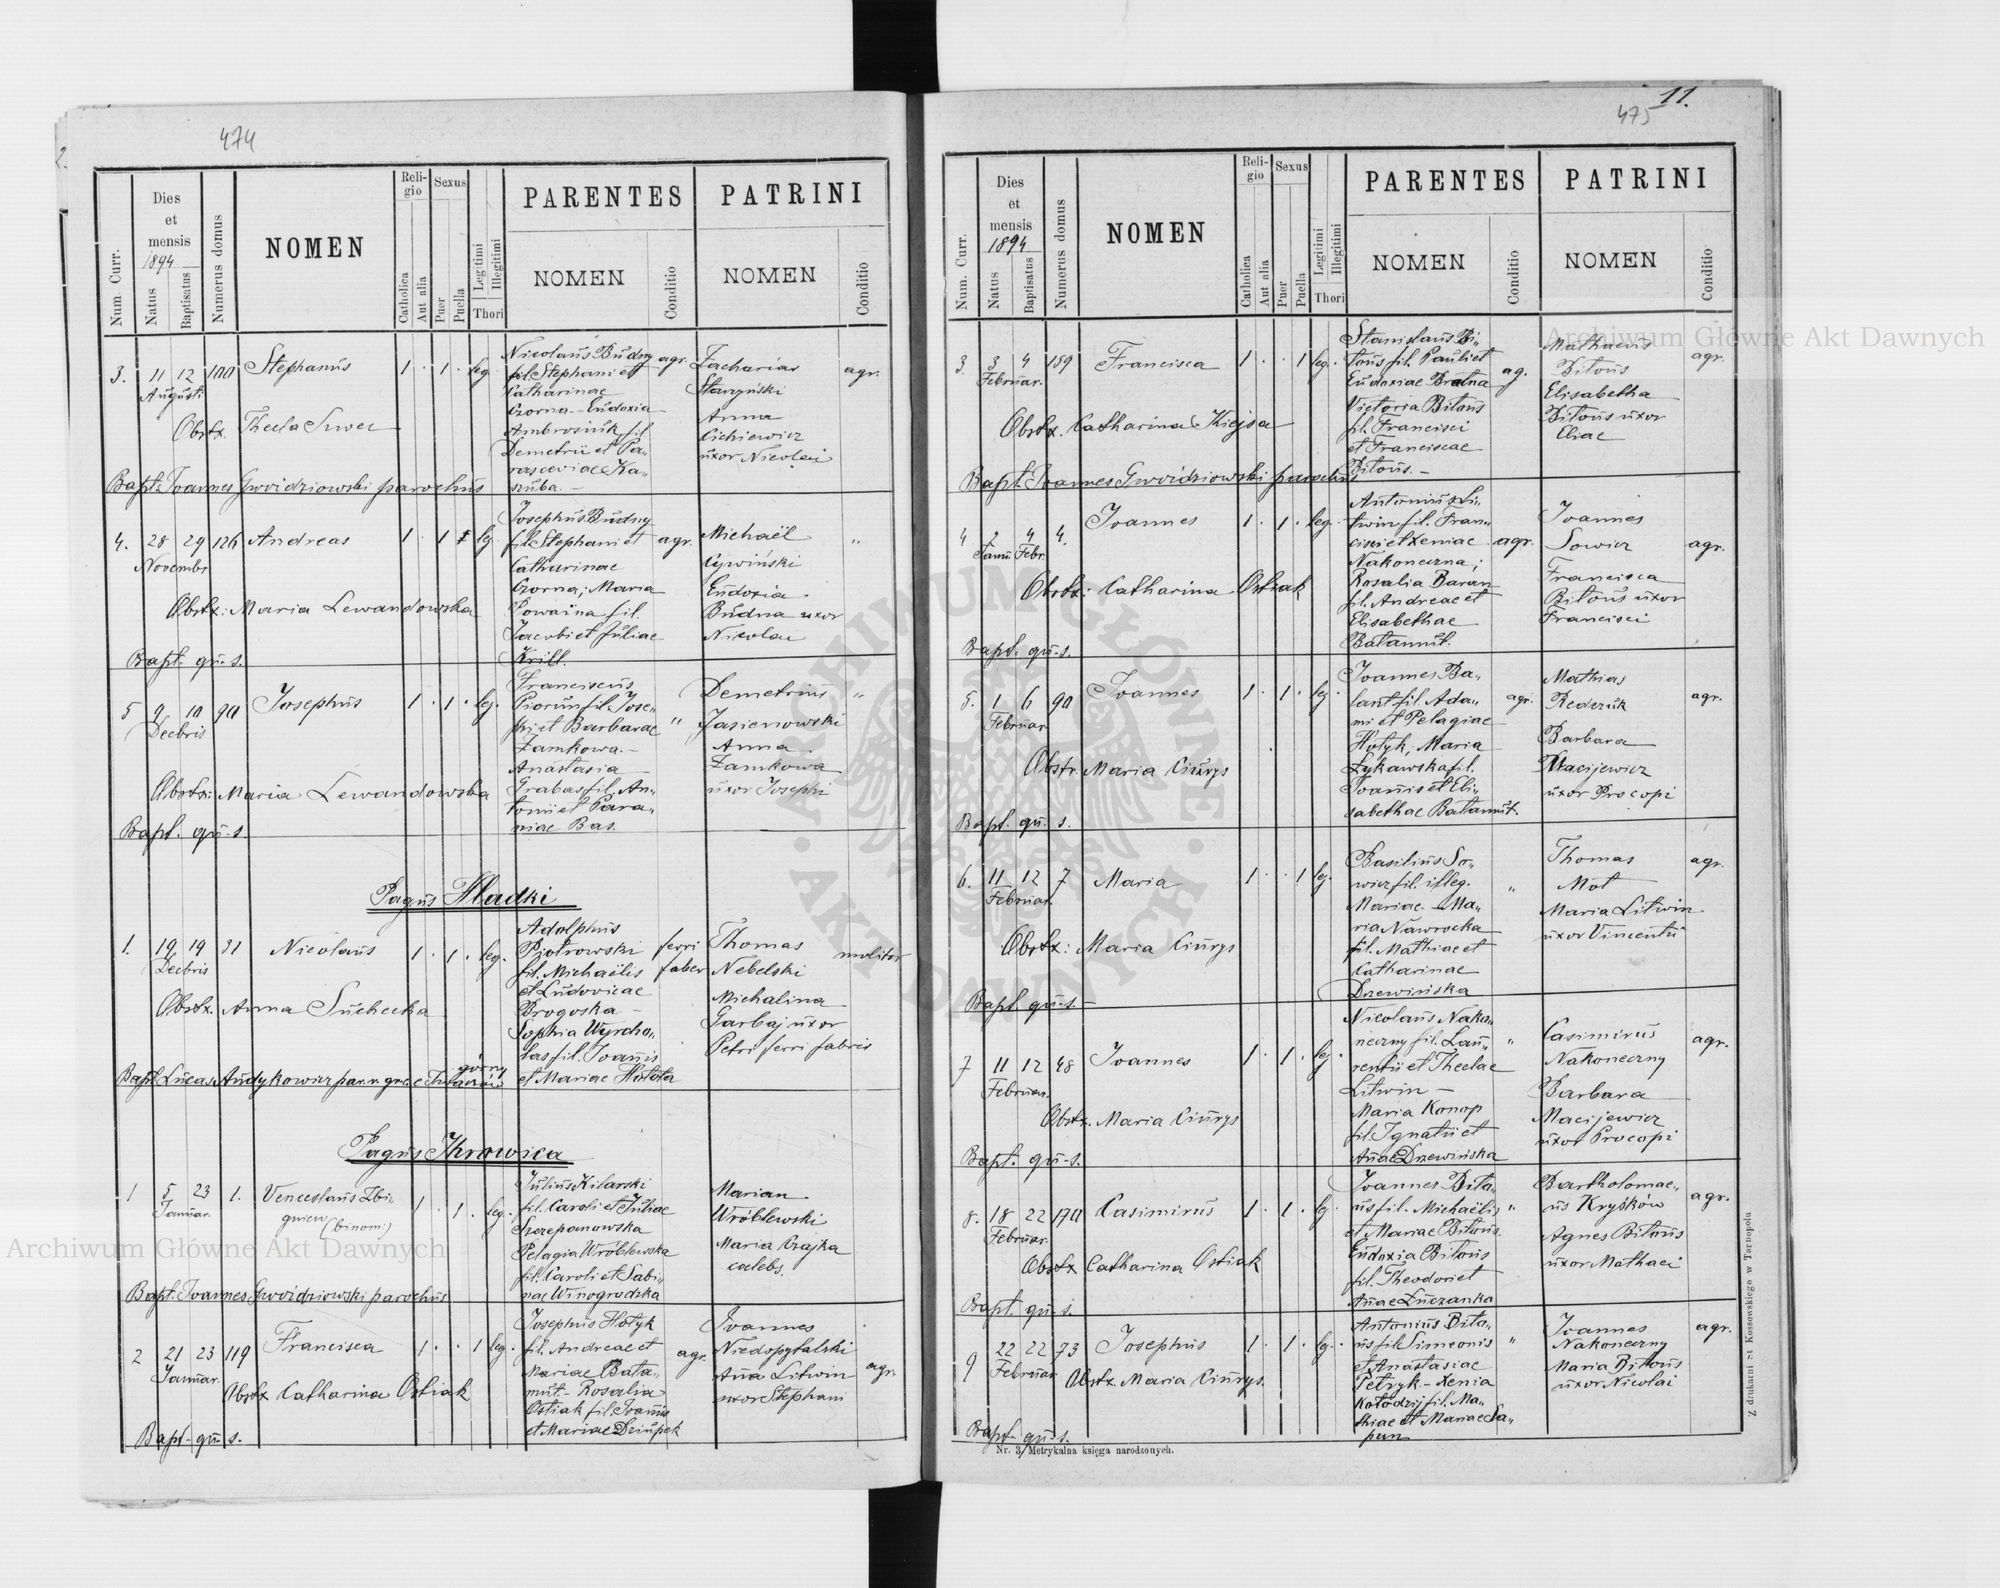 474
Num. Curr.
Dies et mensis
1894
Natus
Baptisatus
Numerus domus
NOMEN
Religio
Catholica
Aut alia
Sexus
Puer
Puella
Legitimi
Illegitimi
Thori
PARENTES
NOMEN
Conditio
PATRINI
NOMEN
Conditio
3. 11 12 Augusti 100 Stephanus 1 . 1 . leg.
Nicolaus Budny agr.
fil. Stephani et
Catharinae
Czorna - Eudoxia
Ambrosiuk fil.
Demetrii et Pa-
rasceviae Ka-
szuba. -
Zacharias agr.
Starzyński
Anna
Cichiewicz
uxor Nicolai
Obstx. Thecla Suwer
Bapt. Joannes Gwoidziowski parochus
4. 28 29 Novembr 126 Andreas 1 . 1 leg
Josephus Budny
fil. Stephani et agr.
Catharinae
Czorna; Maria
Powaina fil.
Jacobi et Juliae
Krill.
Michaël "
Cywiński
Eudoxia
Budna uxor
Nicolai
Obstx: Maria Lewandowska
Bapt. qu. s.
5 9 10 Decbris 90 Josephus 1 . 1 . leg.
Franciscus
Piorun fil. Jose-
phi et Barbarae "
Zamkowa. -
Anastasia
Grabas fil. An-
tonii et Para-
niae Bas.
Demetrius "
Jasienowski
Anna
Zamkowa
uxor Josephi
Obstx: Maria Lewandowska
Bapt. qu. s.
Pagus Hladki
1. 19 19 Decbris 31 Nicolaus 1 . 1 . leg.
Adolphus
Piotrowski ferri
fil. Michaëlis faber
et Ludovicae
Brogoska -
Sophia Wyrcho-
las fil. Joannis
et Mariae Hołota
Thomas molitor
Nebelski
Michalina
Garbaj uxor
Petri ferri fabris
Obstx. Anna Suchecka
Pagus Ihrowica
1 5 23 Januar. 1. Venceslaus Zbi-
gniew (binom.) 1 . 1 . leg.
Julius Kilarski
fil. Caroli et Juliae
Szczepanowska
Pelagia Wróblewska
fil. Caroli et Sabi-
nae Winogrodzka
Marian
Wróblewski
Maria Czajka
caelebs.
Bapt. Joannes Gwoidziowski parochus
2 21 23 Januar. 119 Francisca 1 . . 1 leg.
Josephus Hołyk
fil. Andreae et agr.
Mariae Bata-
mut - Rosalia
Ostiak fil. Joannis
et Mariae Dziupek
Joannes
Niedopytalski
Anna Litwin agr.
uxor Stephani
Obstx Catharina Ostiak
Bapt. qu. s.
475 11.
Num. Curr.
Dies et mensis
1894
Natus
Baptisatus
Numerus domus
NOMEN
Religio
Catholica
Aut alia
Sexus
Puer
Puella
Legitimi
Illegitimi
Thori
PARENTES
NOMEN
Conditio
PATRINI
NOMEN
Conditio
3. 3 4 Februar. 189 Francisca 1 . . 1 leg.
Stanislaus Bi-
tous fil. Pauli et
Eudoxiae Bratna ag.
Victoria Bitous
fil. Francisci
et Franciscae
Bitous. -
Mathaeus agr.
Bitous
Elisabetha
Bitous uxor
Eliae
Obstx. Catharina Kiejsa
Bapt. Joannes Gwoidziowski parochus
4 2 Janu. 4 Febr. 4. Joannes 1 . 1 . leg.
Antonius Li-
twin fil. Fran-
cisci et Xeniae agr.
Nakoneczna;
Rosalia Baran
fil. Andreae et
Elisabethae
Batamut.
Joannes
Sowicz agr.
Francisca
Bitous uxor
Francisci
Obstx: Catharina Ostiak
Bapt. qu. s.
5. 1 6 Februar. 90 Joannes 1 . 1 . leg
Joannes Ba-
lant fil. Ada- agr.
mi et Pelagiae
Hołyk; Maria
Łykawska fil.
Joannis et Eli-
sabethae Batamut.
Mathias
Rederuk agr.
Barbara
Macijewicz
uxor Procopi
Obstx. Maria Ciurys
Bapt. qu. s.
6. 11 12 Februar. 7 Maria 1 . . 1 leg.
Basilius So-
wicz fil. illeg. "
Mariae. - Ma-
ria Nawrocka
fil. Mathiae et
Catharinae
Drzewińska
Thomas agr.
Mot
Maria Litwin
uxor Vincentii
Obstx: Maria Ciurys
Bapt. qu. s. -
7 11 12 Februar. 48 Joannes 1 . 1 . leg.
Nicolaus Nako-
neczny fil. Lau- "
rentii et Theclae
Litwin -
Maria Konop
fil. Ignatii et
Annae Drzewińska
Casimirus agr.
Nakoneczny
Barbara
Macijewicz
uxor Procopi
Obstx. Maria Ciurys
Bapt. qu. s.
8. 18 22 Februar. 170 Casimirus 1 . 1 . leg.
Joannes Bita-
us fil. Michaëlis "
et Mariae Bitous.
Eudoxia Bitous
fil. Theodori et
Annae Łuczanka
Bartholomae-
us Kryśków agr.
Agnes Bitous
uxor Mathaei
Obstx Catharina Ostiak
Bapt. qu. s.
9 22 22 Februar 73 Josephus 1 . 1 . leg.
Antonius Bita-
us fil. Simeonis "
et Anastasiae
Petryk - Xenia
Kołodzij fil. Ma-
thiae et Mariae Sa-
pun
Joannes agr.
Nakoneczny
Maria Bitous
uxor Nicolai
Obstx. Maria Ciurys.
Bapt. qu. s.
Nr. 3. Metrykalna księga narodzonych.
Z drukarni St Kossowskiego w Tarnopolu
Archiwum Główne Akt Dawnych
Archiwum Główne Akt Dawnych
ARCHIWUM GŁÓWNE
AKT DAWNYCH